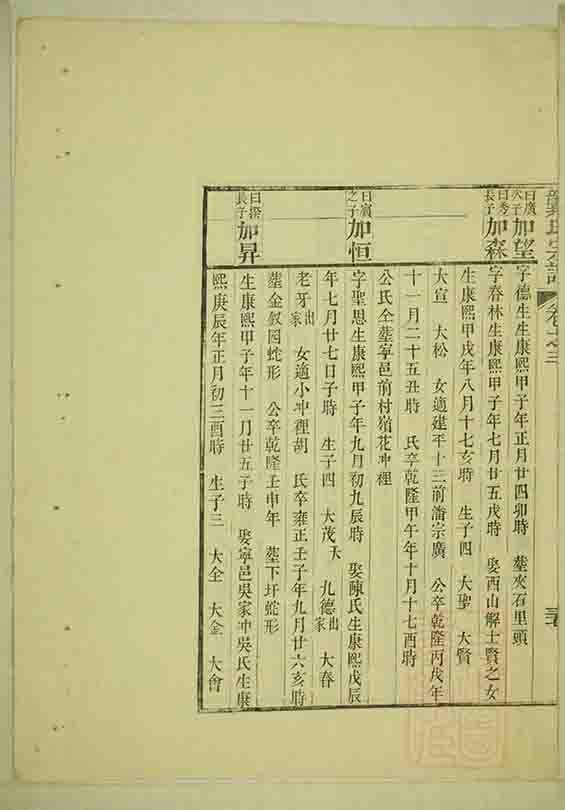 宗譜
卷之三
曰廣次子 加望 字德生生康熙甲子年正月廿四卯時 塟夾石里頭
曰秀長子 加森 字春林生康熙甲子年七月廿五戌時 娶西山解士賢之女
生康熙甲戌年八月十七亥時 生子四 大聖 大賢
大宣 大松 女適建平十三前潘宗廣 公卒乾隆丙戌年
十一月二十五丑時 氏卒乾隆甲午年十月十七酉時
公氏仝塟寧邑前村嶺花冲裡
曰賓之子 加恒 字聖思生康熙甲子年九月初九辰時 娶陳氏生康熙戊辰
年七月廿七日子時 生子四 大茂 大 九德出家 大春
老牙出家 女適小冲裡胡 氏卒雍正壬子年九月廿六亥時
塟金釵囘蛇形 公卒乾隆壬申年 塟下圩蛇形
長子 加昇 生康熙甲子年十一月廿五子時 娶寧邑吳家冲吳氏生康
熙庚辰年正月初三酉時 生子三 大全 大金 大會